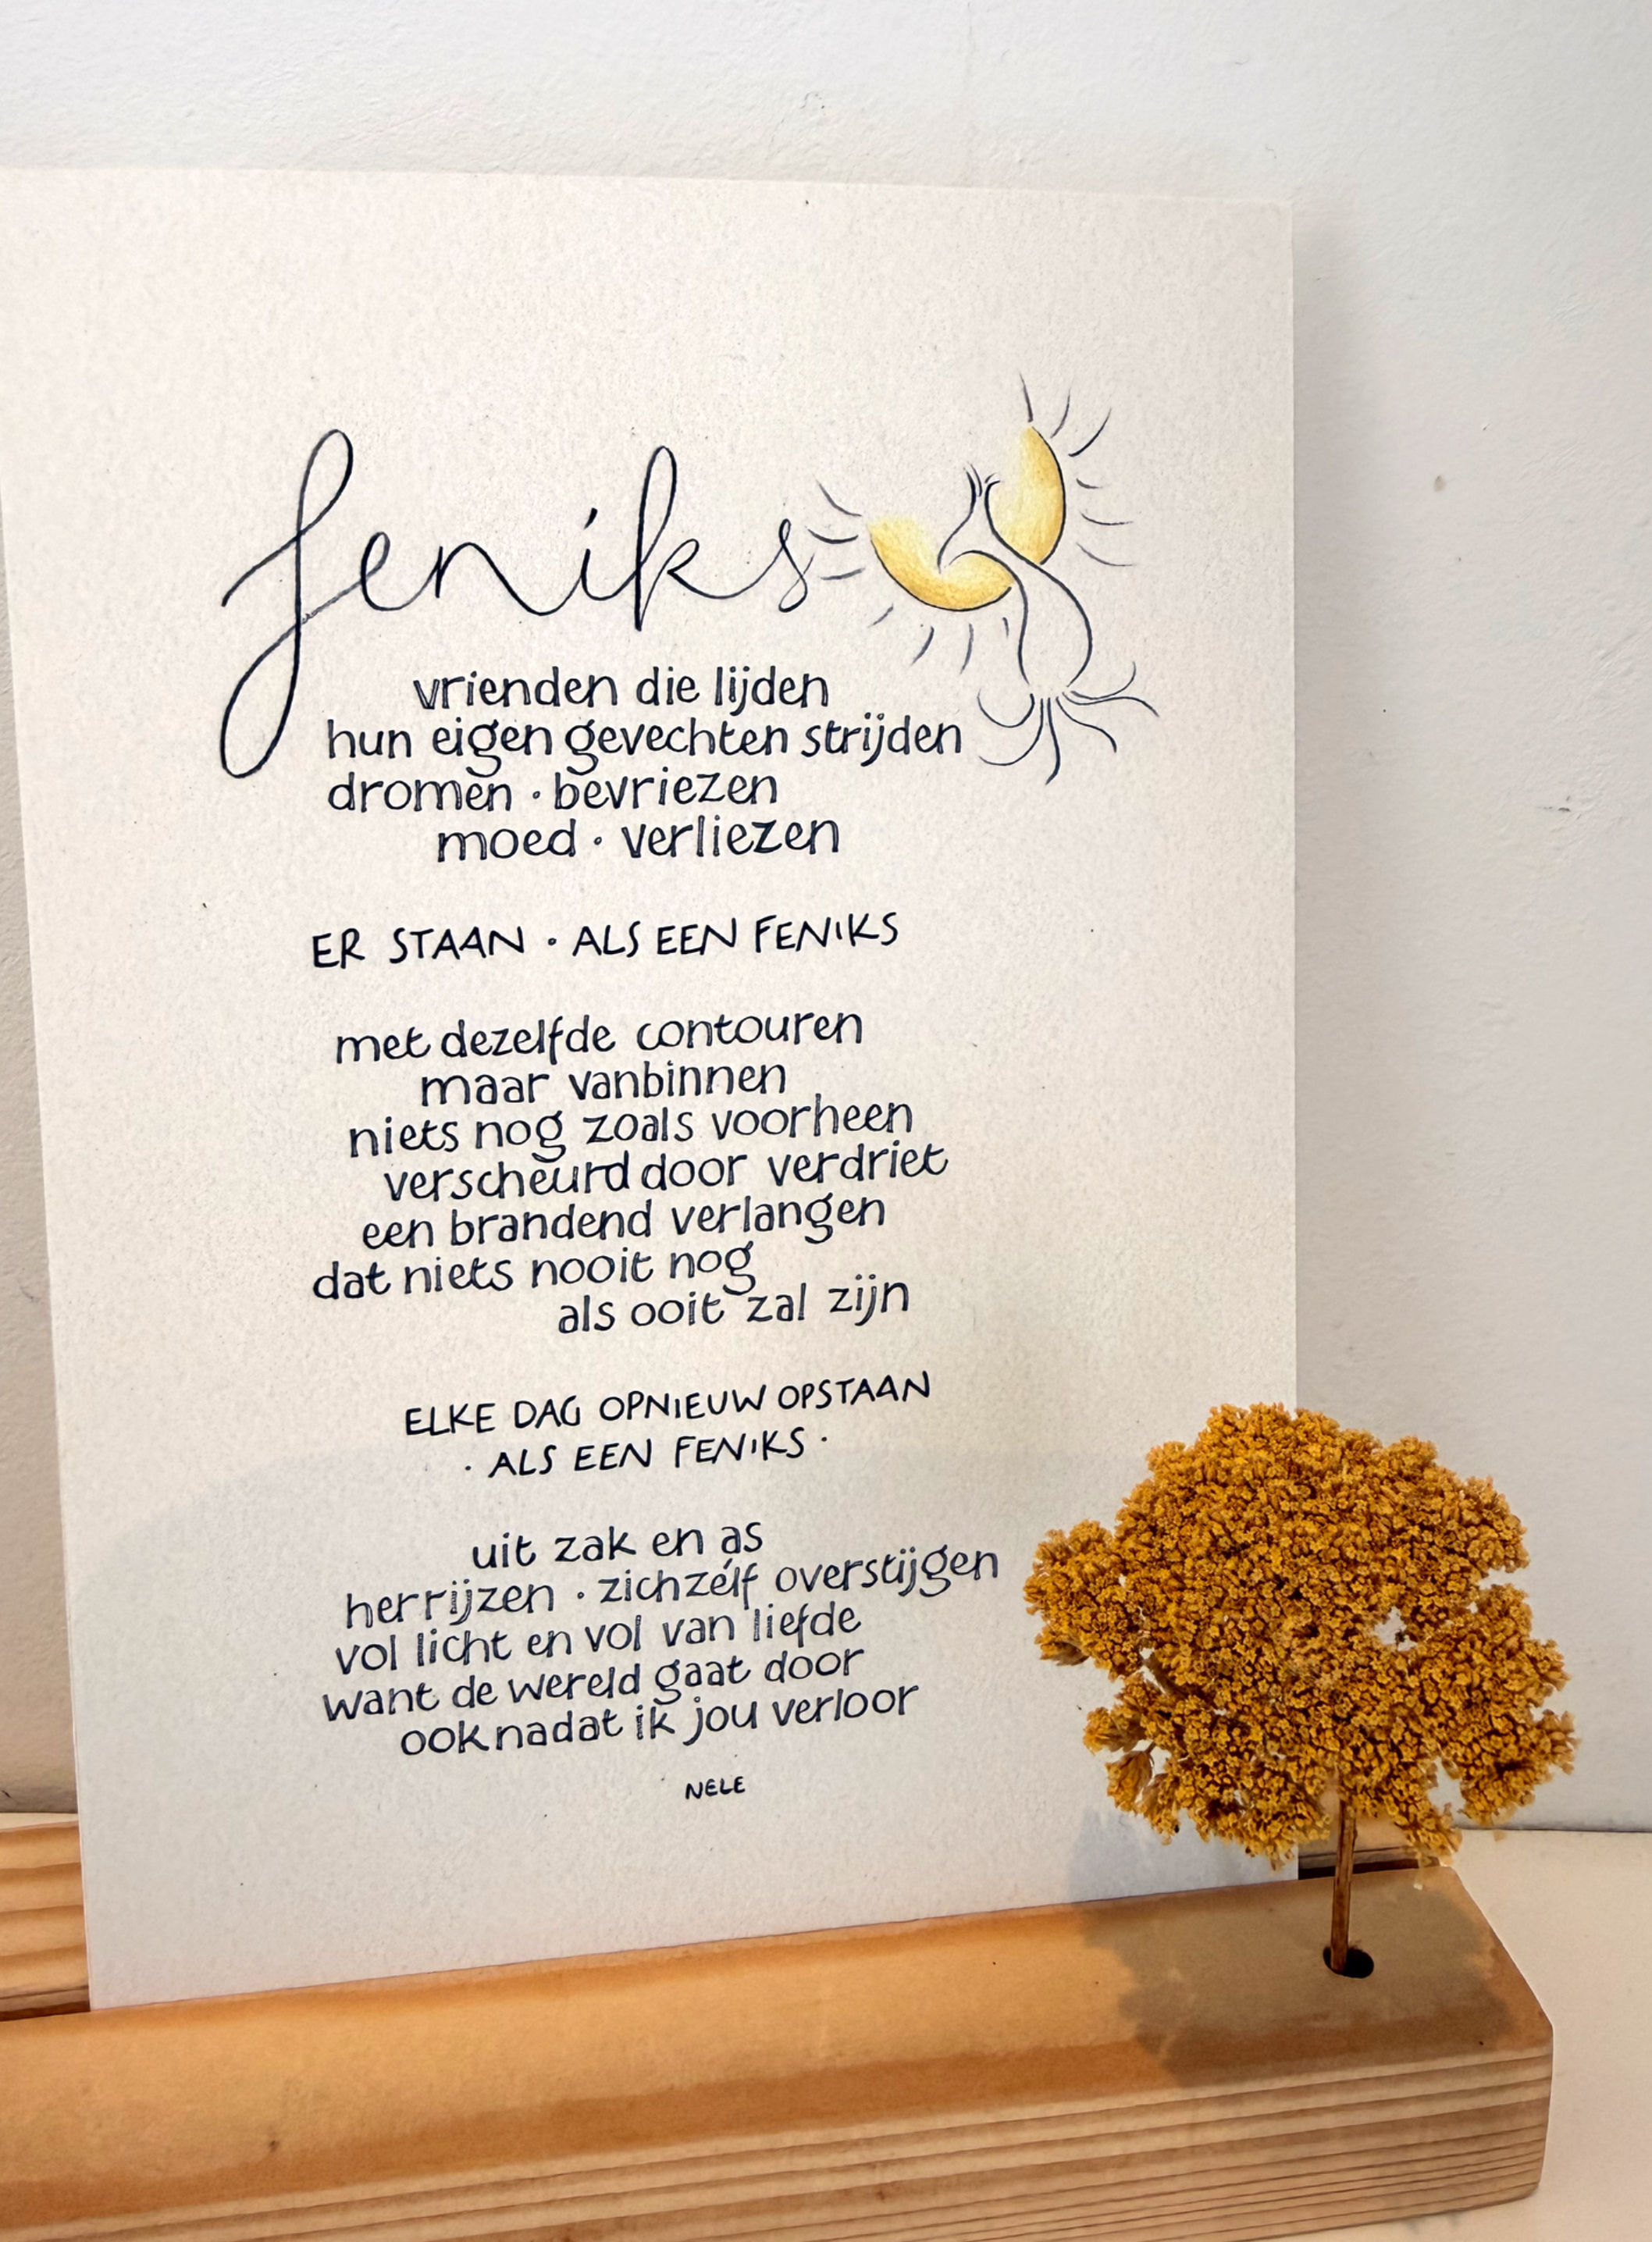 feniks
vrienden die lijden
hun eigen gevechten strijden
dromen · bevriezen
moed · verliezen
ER STAAN · ALS EEN FENIKS
met dezelfde contouren
maar vanbinnen
niets nog zoals voorheen
verscheurd door verdriet
een brandend verlangen
dat niets nooit nog
als ooit zal zijn
ELKE DAG OPNIEUW OPSTAAN
· ALS EEN FENIKS ·
uit zak en as
herrijzen · zichzélf overstijgen
vol licht en vol van liefde
want de wereld gaat door
ook nadat ik jou verloor
NELE